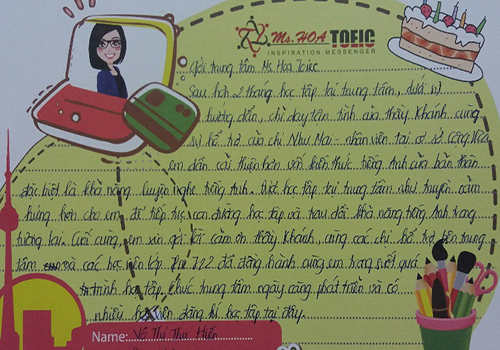 Ms. HOA TOEIC
INSPIRATION MESSENGER
Gửi trung tâm Ms Hoa Toeic
Sau hơn 2 tháng học tập tại trung tâm, dưới sự
hướng dẫn, chỉ dạy tận tình của thầy Khánh cùng
sự hỗ trợ của chị Như Mai - nhân viên tại cơ sở Cộng Hòa
em dần cải thiện hơn vốn kiến thức tiếng Anh của bản thân
đặc biệt là khả năng luyện nghe tiếng Anh. học tập tại trung tâm như truyền cảm
hứng hơn cho em để tiếp tục con đường học tập và trau dồi khả năng tiếng Anh trong
tương lai. Cuối cùng, em xin gửi lời cảm ơn thầy Khánh, cùng các chị hỗ trợ bên trung
tâm và các học viên lớp Pre 722 đã đồng hành cùng em trong suốt quá
trình học tập, chúc trung tâm ngày càng phát triển và có
nhiều học viên đăng kí học tập tại đây.
Name: Võ Thị Thu Hiền